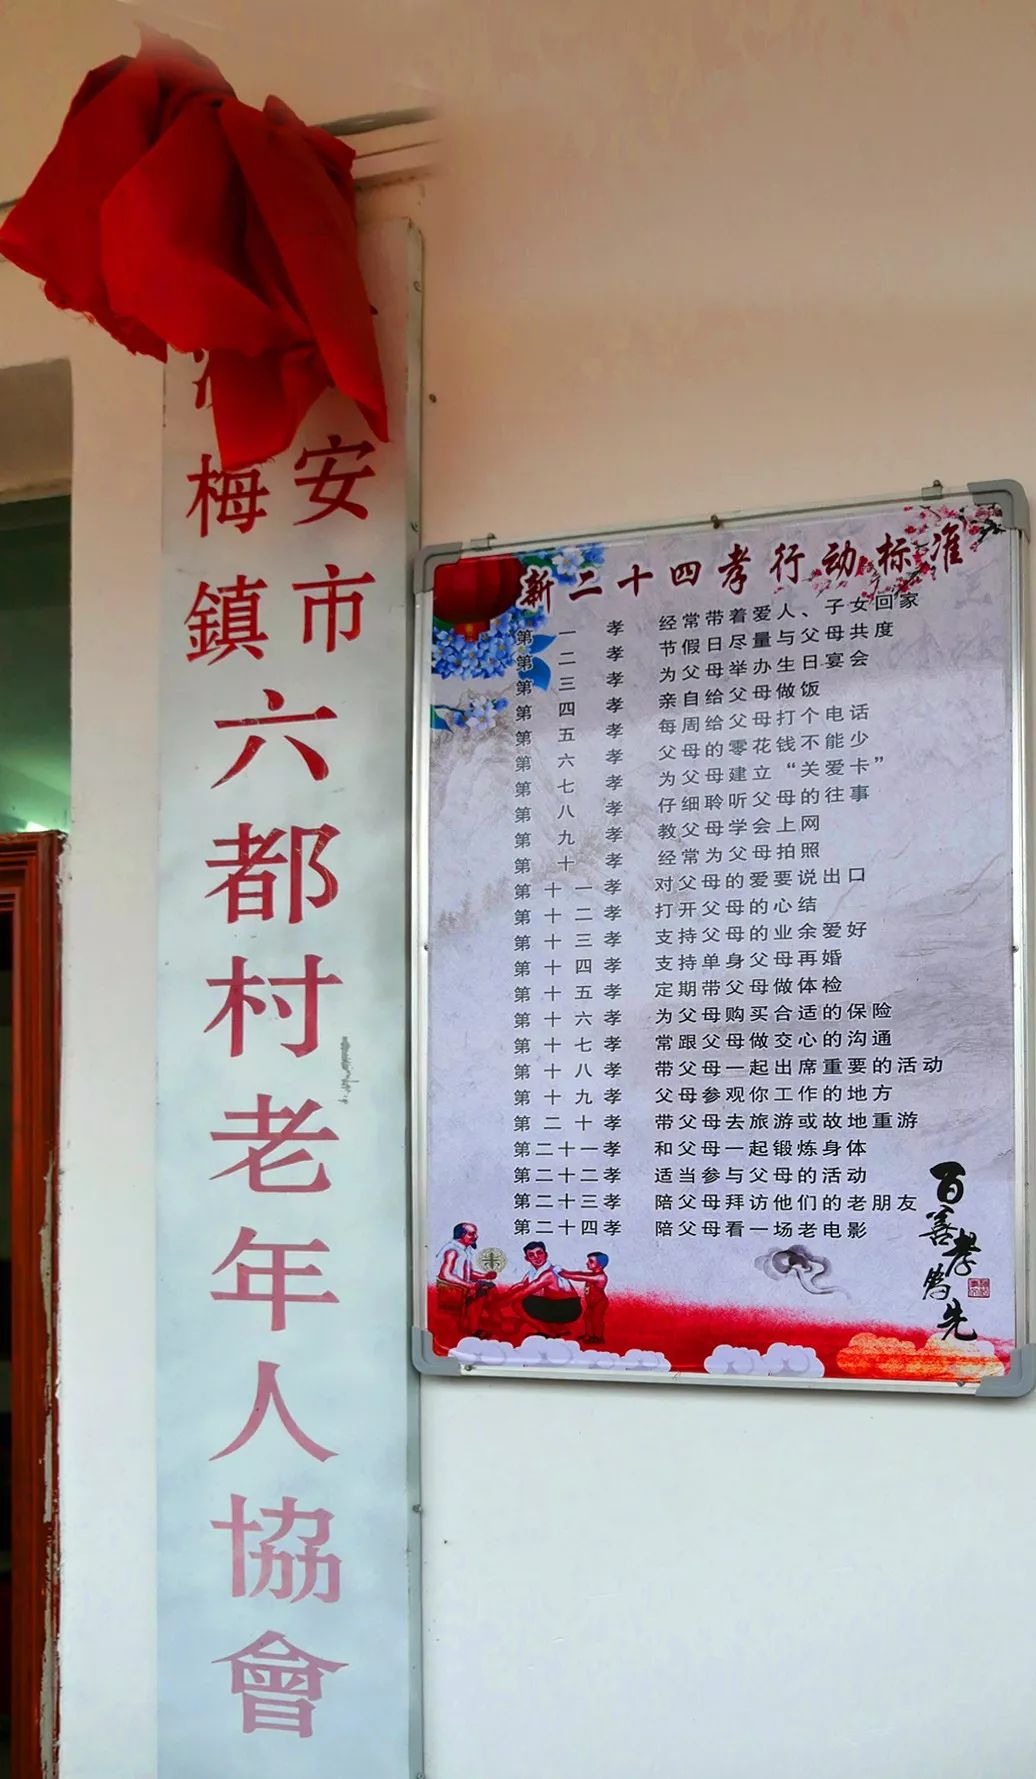 安市
梅鎮
六都村老年人協會
新二十四孝行动标准
第一孝 经常带着爱人、子女回家
第二孝 节假日尽量与父母共度
第三孝 为父母举办生日宴会
第四孝 亲自给父母做饭
第五孝 每周给父母打个电话
第六孝 父母的零花钱不能少
第七孝 为父母建立“关爱卡”
第八孝 仔细聆听父母的往事
第九孝 教父母学会上网
第十孝 经常为父母拍照
第十一孝 对父母的爱要说出口
第十二孝 打开父母的心结
第十三孝 支持父母的业余爱好
第十四孝 支持单身父母再婚
第十五孝 定期带父母做体检
第十六孝 为父母购买合适的保险
第十七孝 常跟父母做交心的沟通
第十八孝 带父母一起出席重要的活动
第十九孝 父母参观你工作的地方
第二十孝 带父母去旅游或故地重游
第二十一孝 和父母一起锻炼身体
第二十二孝 适当参与父母的活动
第二十三孝 陪父母拜访他们的老朋友
第二十四孝 陪父母看一场老电影
百善孝为先